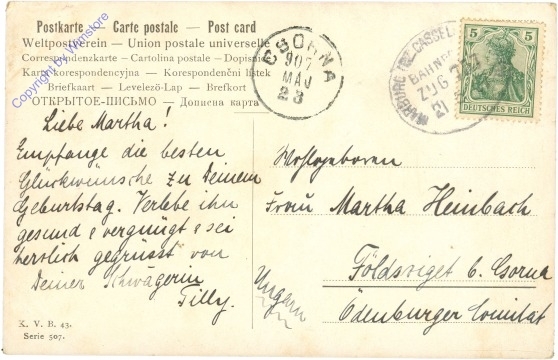 Postkarte — Carte postale — Post card
Weltpostverein — Union postale universelle
Correspondenzkarte — Cartolina postale — Dopisnice
Karta korespondencyjna — Korespondenční lístek
Briefkaart — Levelező-Lap — Brefkort
ОТКРЫТОЕ-ПИСЬМО — Дописна карта
Copyright by Wernstore
CSORNA
907
MÁJ
23
WARBURG (BZ. CASSEL)
BAHNPOST
ZUG
5 5
DEUTSCHES REICH
Liebe Martha!
Empfange die besten
Glückwünsche zu Deinem
Geburtstag. Verlebe ihn
gesund & vergnügt & sei
herzlich gegrüsst von
Deiner Schwägerin
Tilly.
Wohlgeboren
Frau Martha Heinbach
Földsziget b. Csorna
Ödenburger Comitat
Ungarn
K. V. B. 43.
Serie 507.